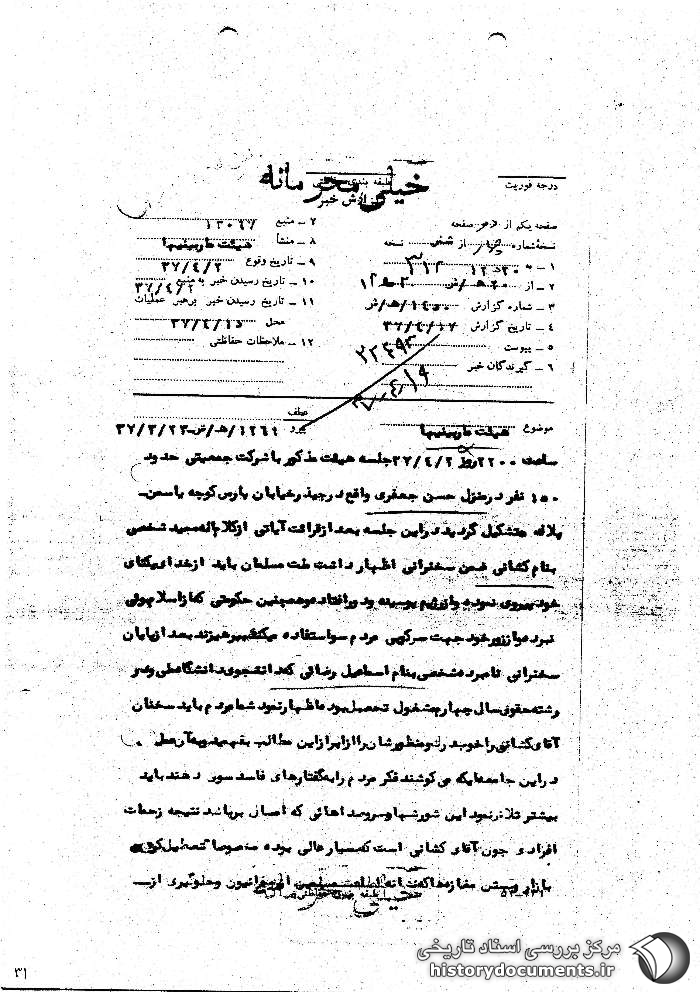 خیلی محرمانه
درجه فوریت
گزارش خبر
صفحه یکم از دو صفحه
نسخه شماره چهار از شش نسخه
۱ – به ۳۱۲
۲ – از ۲۰ ه‍/ش
۳ – شماره گزارش ۱۴۵۰/ه‍/ش
۴ – تاریخ گزارش ۳۷/۴/۱۷
۵ – پیوست
۶ – گیرندگان خبر
۷ – منبع ۱۳۰۶۷
۸ – منشأ هیئت ماربینیها
۹ – تاریخ وقوع ۳۷/۴/۲
۱۰ – تاریخ رسیدن خبر به منبع ۳۷/۴/۲
۱۱ – تاریخ رسیدن خبر برهبر عملیات
محل ۳۷/۴/۱۵
۱۲ – ملاحظات حفاظتی
۳۷-۴/۱۹
موضوع هیئت ماربینیها
عطف
پیرو ۱۲۶۱/ه‍/ش-۳۷/۳/۲۳
ساعت ۲۲۰۰ روز ۳۷/۴/۲ جلسه هیئت مذکور با شرکت جمعیتی حدود
۱۵۰ نفر در منزل حسن جعفری واقع در خیابان پارس کوچه یاسمن-
پلاک متشکل گردید در این جلسه بعد از قرائت آیاتی از کلام الله مجید شخصی
بنام کشانی ضمن سخنرانی اظهار داشت ملت مسلمان باید از خدای یکتای
خود پیروی نموده و از رژیم پوسیده و در افتاده و همچنین حکومتی که از اسلام بوئی
نبرده و از زور خود جهت سرکوبی مردم سو استفاده میکند بپرهیزند بعد از پایان
سخنرانی نامبرده شخصی بنام اسماعیل رضائی که دانشجوی دانشگاه ملی و در
رشته حقوق سال چهارم مشغول تحصیل بود اظهار نمود شما مردم باید سخنان
آقای کشانی را خوب درک و منظورشان را از ابراز این مطالب بفهمید و به آن عمل
در این جامعه ایکه می کوشند فکر مردم را به گفتارهای فاسد سوق دهند باید
بیشتر تلاش نمود این شورشها و سروصداهائی که امسال برپا شد نتیجه زحمات
افرادی چون آقای کشانی است که بسیار عالی بوده مخصوصاً تعطیل کردن
بازار و بستن مغازه ها و جلوگیری از-
۳۱
مرکز بررسی اسناد تاریخی
historydocuments.ir